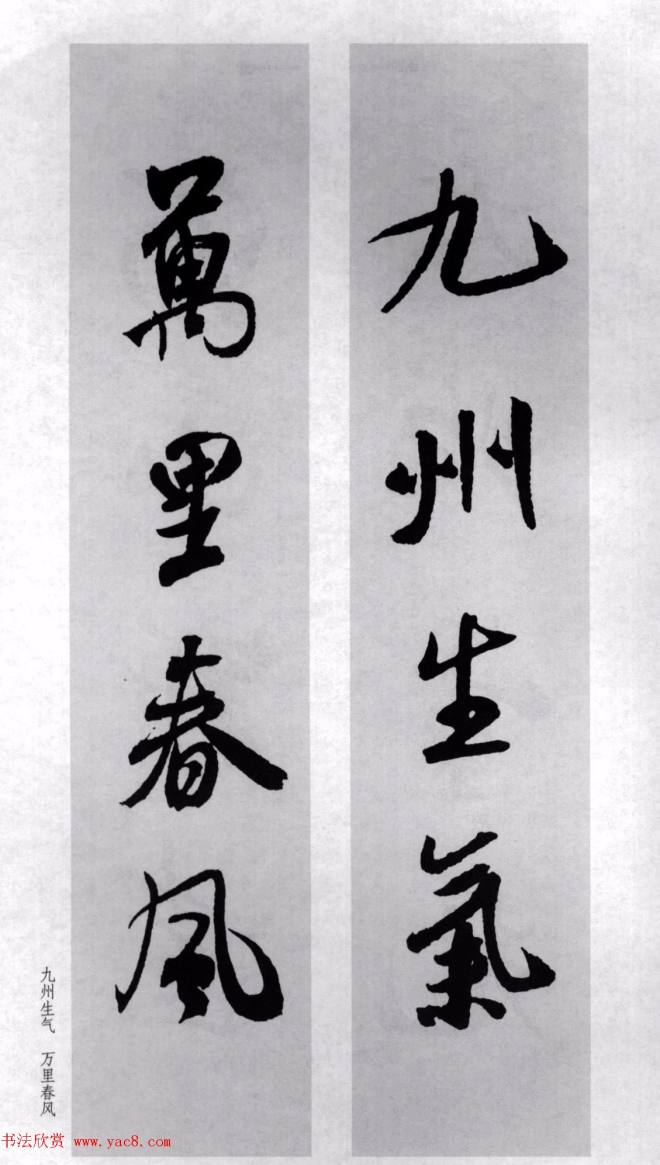 九州生氣
萬里春風
九州生气 万里春风
书法欣赏 www.yac8.com